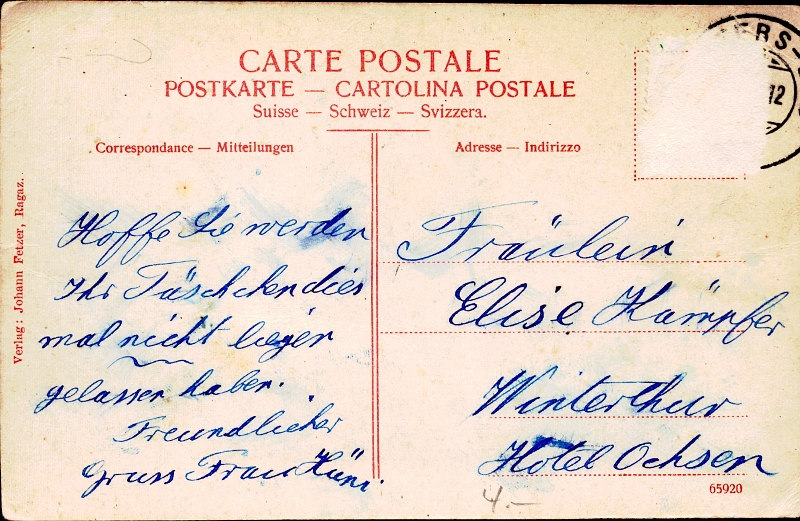 CARTE POSTALE
POSTKARTE — CARTOLINA POSTALE
Suisse — Schweiz — Svizzera.
Correspondance — Mitteilungen
Adresse — Indirizzo
Hoffe Sie werden
Ihr Täschchen dies
mal nicht liegen
gelassen haben.
Freundlicher
Gruss Frau Hüni.
Fräulein
Elise Kämpfer
Winterthur
Hotel Ochsen
65920
4.—
Verlag: Johann Fetzer, Ragaz.
12